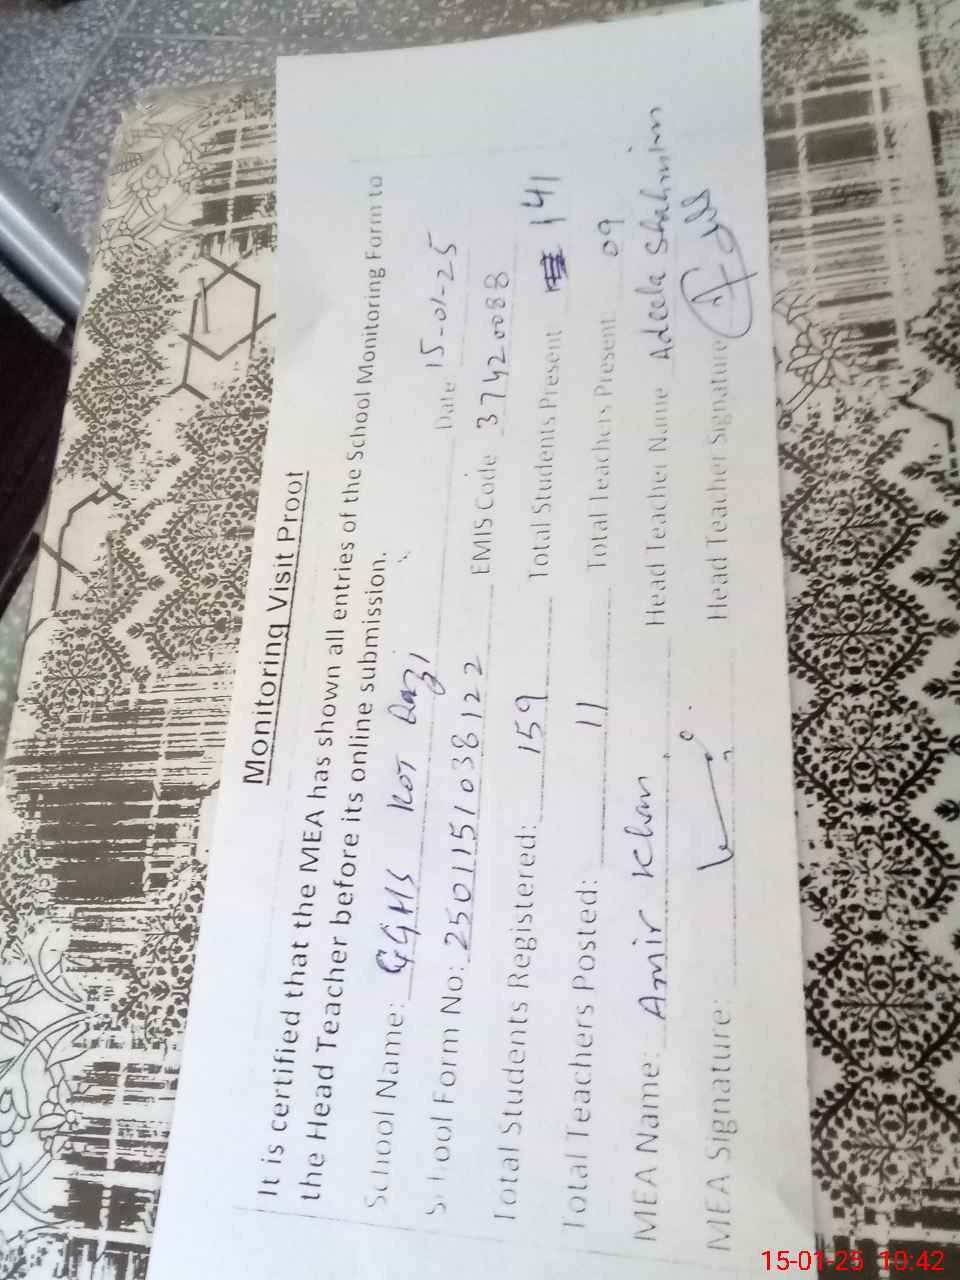 Monitoring Visit Proof
It is certified that the MEA has shown all entries of the School Monitoring Form to
the Head Teacher before its online submission.
School Name: GGHS KOT Dazi Date 15-01-25
School Form No: 2501151038122 EMIS Code 37420088
Total Students Registered: 159 Total Students Present 141
Total Teachers Posted: 11 Total Teachers Present 09
MEA Name: Amir Khan Head Teacher Name Adeela Shahmim
MEA Signature: Head Teacher Signature
15-01-25 10:42